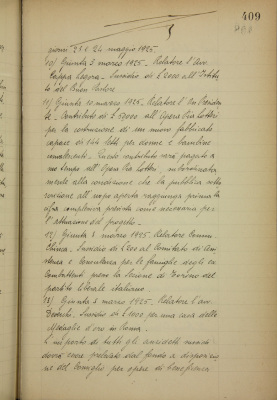 409
giorni 23 e 24 maggio 1925.
10) Giunta 3 marzo 1925. Relatore l'avv.
Cappa Sussidio di L. 2000 all'Istitu
to del Buon Pastore.
11) Giunta 10 marzo 1925. Relatore l'
Contributo di L. all'Opera Pia Lotteri
per la costruzione di un nuovo fabbricato
capace di 144 letti per donne e bambine
convalescenti. Questo contributo verrà pagato a
suo tempo all'Opera Pia Lotteri, subordinata
mente alla condizione che la pubblica sotto
scrizione all'uopo aperta raggiunga
cifra complessiva prevista come necessaria per
l'attuazione del progetto.
12) Giunta marzo 1925. Relatore Comm.
Sussidio di L. al Comitato di Assi
stenza e Consulenza per le famiglie degli ex
Combattenti presso la Sezione di Torino del
partito liberale italiano.
13) Giunta 3 marzo 1925. Relatore l'avv.
Sussidio di L. per una casa delle
Medaglie d'oro in Roma.
L'importo di tutti gli anzidetti
dovrà esser prelevato dal fondo a disposizio
ne del Consiglio per opere di beneficenza